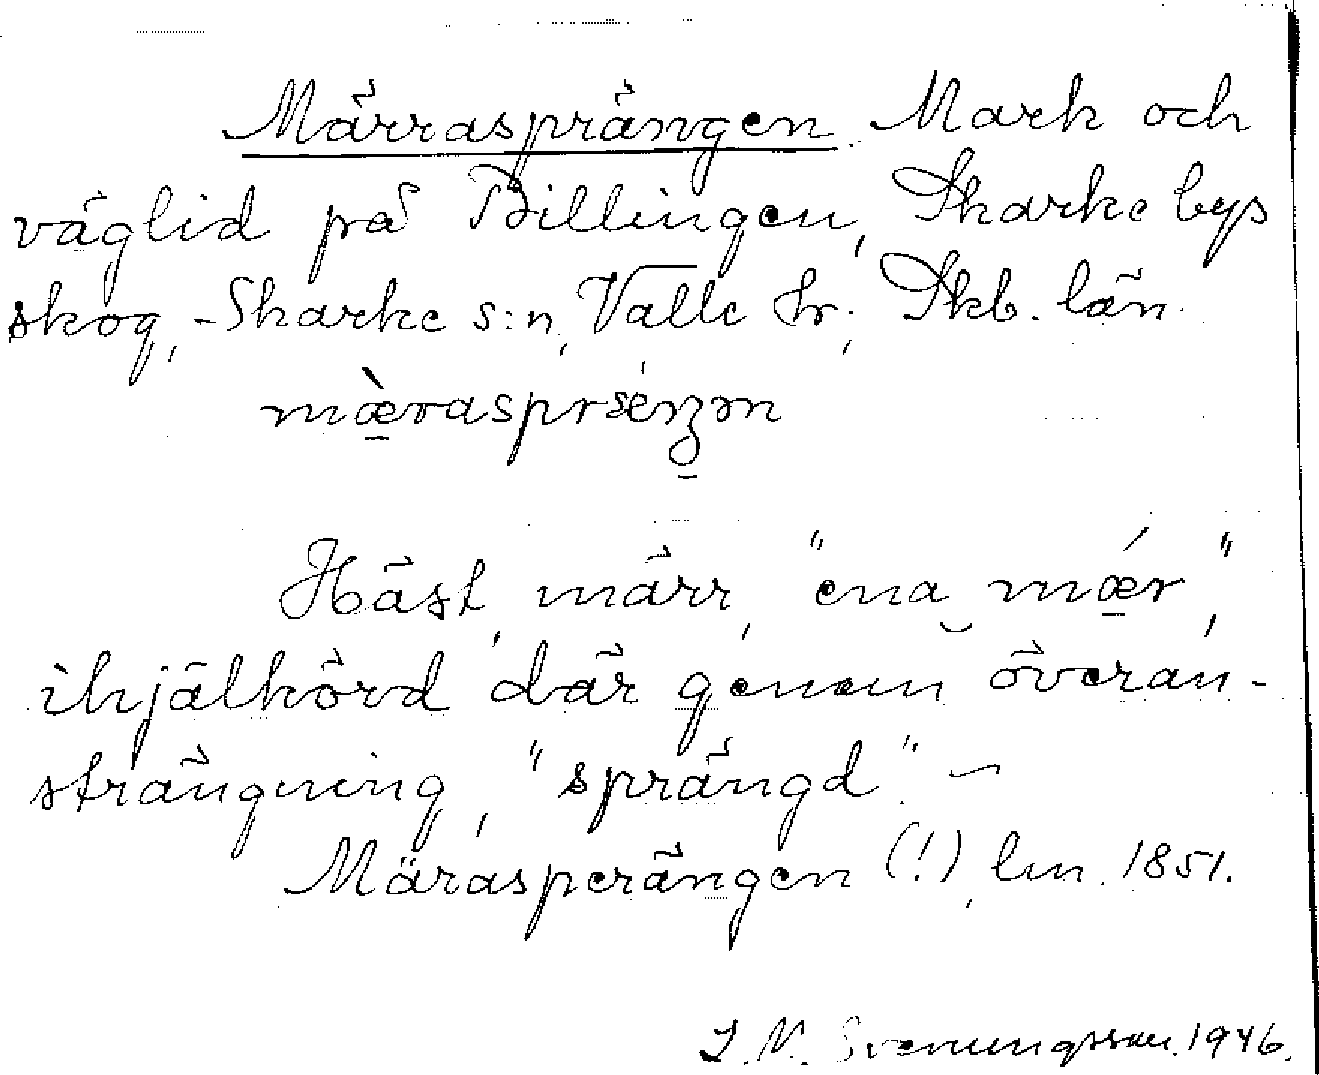 Märrasprängen. Mark och
väglid på Billingen, Skarke bys
skog, Skarke s:n, Valle hr., Skb. län.
Häst, märr, "ena mær",
ihjälkörd där genom överan-
strängning, "sprängd". –
Märasperängen (!), lm. 1851.
J. N. Svenungsson. 1946.